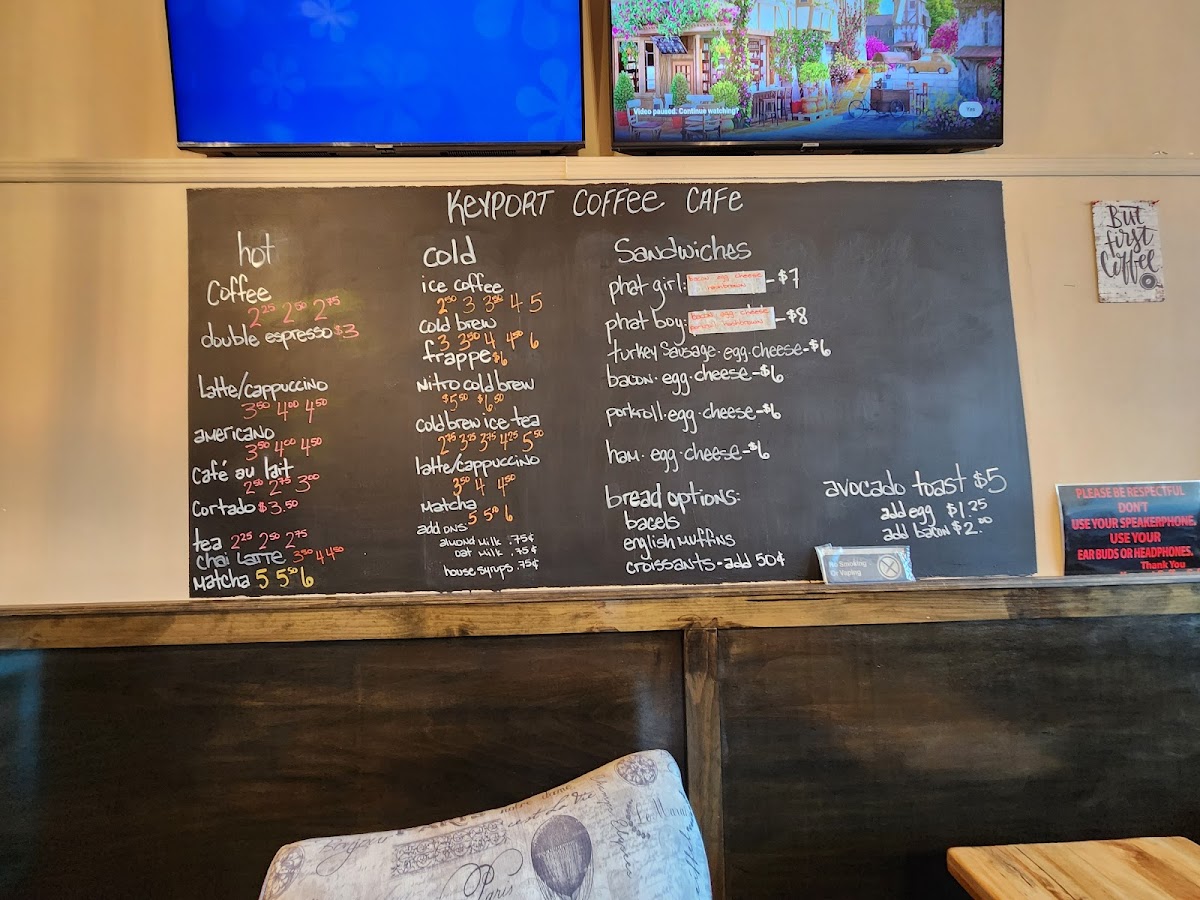 Video paused. Continue watching?
Yes
KEYPORT COFFEE CAFE
hot
Coffee
2.25 2.50 2.75
double espresso $3
Latte/cappuccino
3.50 4.00 4.50
americano
3.50 4.00 4.50
Café au lait
2.50 2.75 3.00
Cortado $3.50
tea 2.25 2.50 2.75
Chai Latte 3.50 4 4.50
Matcha 5 5.50 6
cold
ice coffee
2.50 3 3.50 4 5
cold brew
3 3.50 4 4.50 6
frappe $6
Nitro cold brew
$5.50 $6.50
cold brew ice tea
2.75 3.25 3.75 4.25 5.50
latte/cappuccino
3.50 4 4.50
Matcha
5 5.50 6
add ons
almond milk .75¢
oat milk .75¢
house syrups .75¢
Sandwiches
phat girl: bacon egg cheese hashbrown -$7
phat boy: bacon egg cheese hashbrown -$8
turkey Sausage·egg·cheese-$6
bacon·egg·cheese-$6
porkroll·egg·cheese-$6
ham·egg·cheese-$6
bread options:
bagels
english muffins
croissants-add 50¢
avocado toast $5
add egg $1.25
add bacon $2.00
No Smoking
Or Vaping
But
first
Coffee
PLEASE BE RESPECTFUL
DON'T
USE YOUR SPEAKERPHONE.
USE YOUR
EAR BUDS OR HEADPHONES.
Thank You
Paris